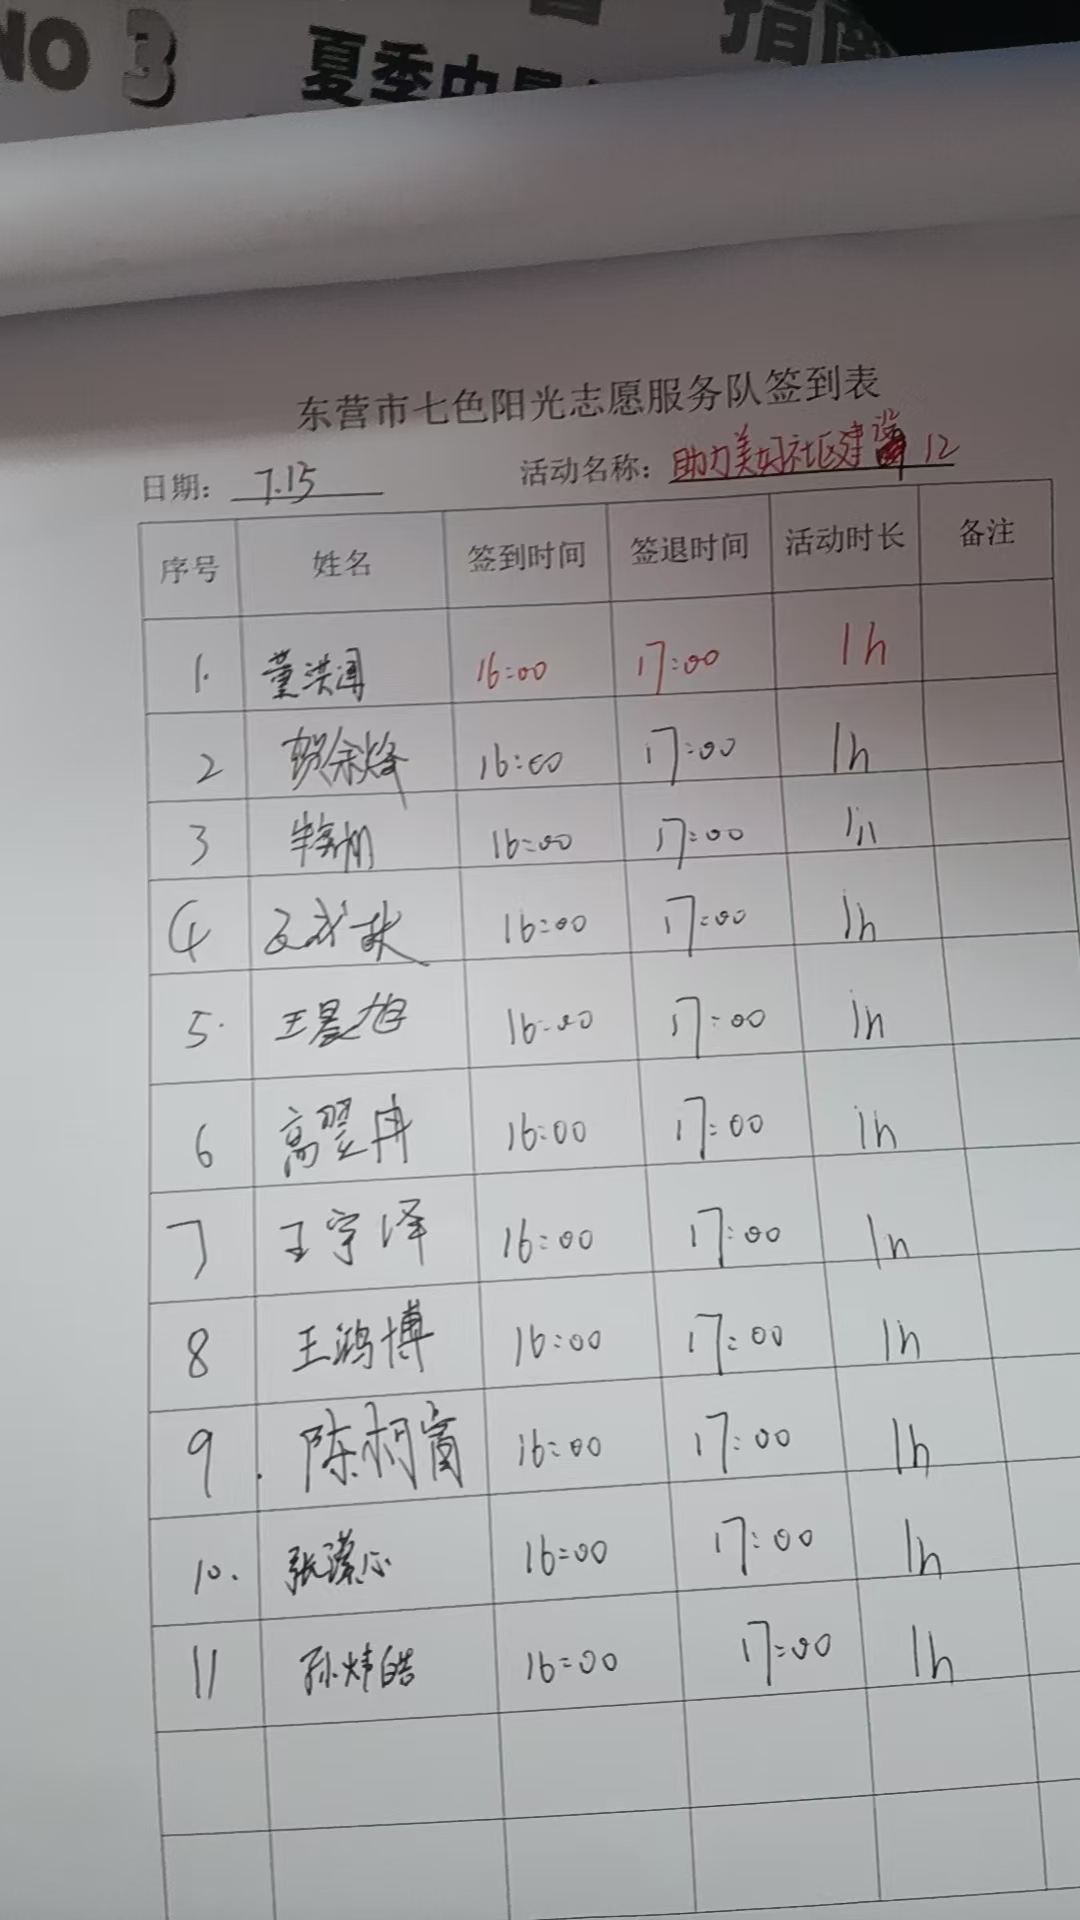 NO 3
夏季中暑
指南
东营市七色阳光志愿服务队签到表
日期: 7.15 活动名称: 助力美好社区建设 12
序号 姓名 签到时间 签退时间 活动时长 备注
1. 董洪闻 16:00 17:00 1h
2 贺余烽 16:00 17:00 1h
3 16:00 17:00 1h
4 16:00 17:00 1h
5. 王晨旭 16:00 17:00 1h
6 高翌冉 16:00 17:00 1h
7 王宇泽 16:00 17:00 1h
8 王鸿博 16:00 17:00 1h
9. 陈柯 16:00 17:00 1h
10. 张潆心 16:00 17:00 1h
11 孙炜皓 16:00 17:00 1h